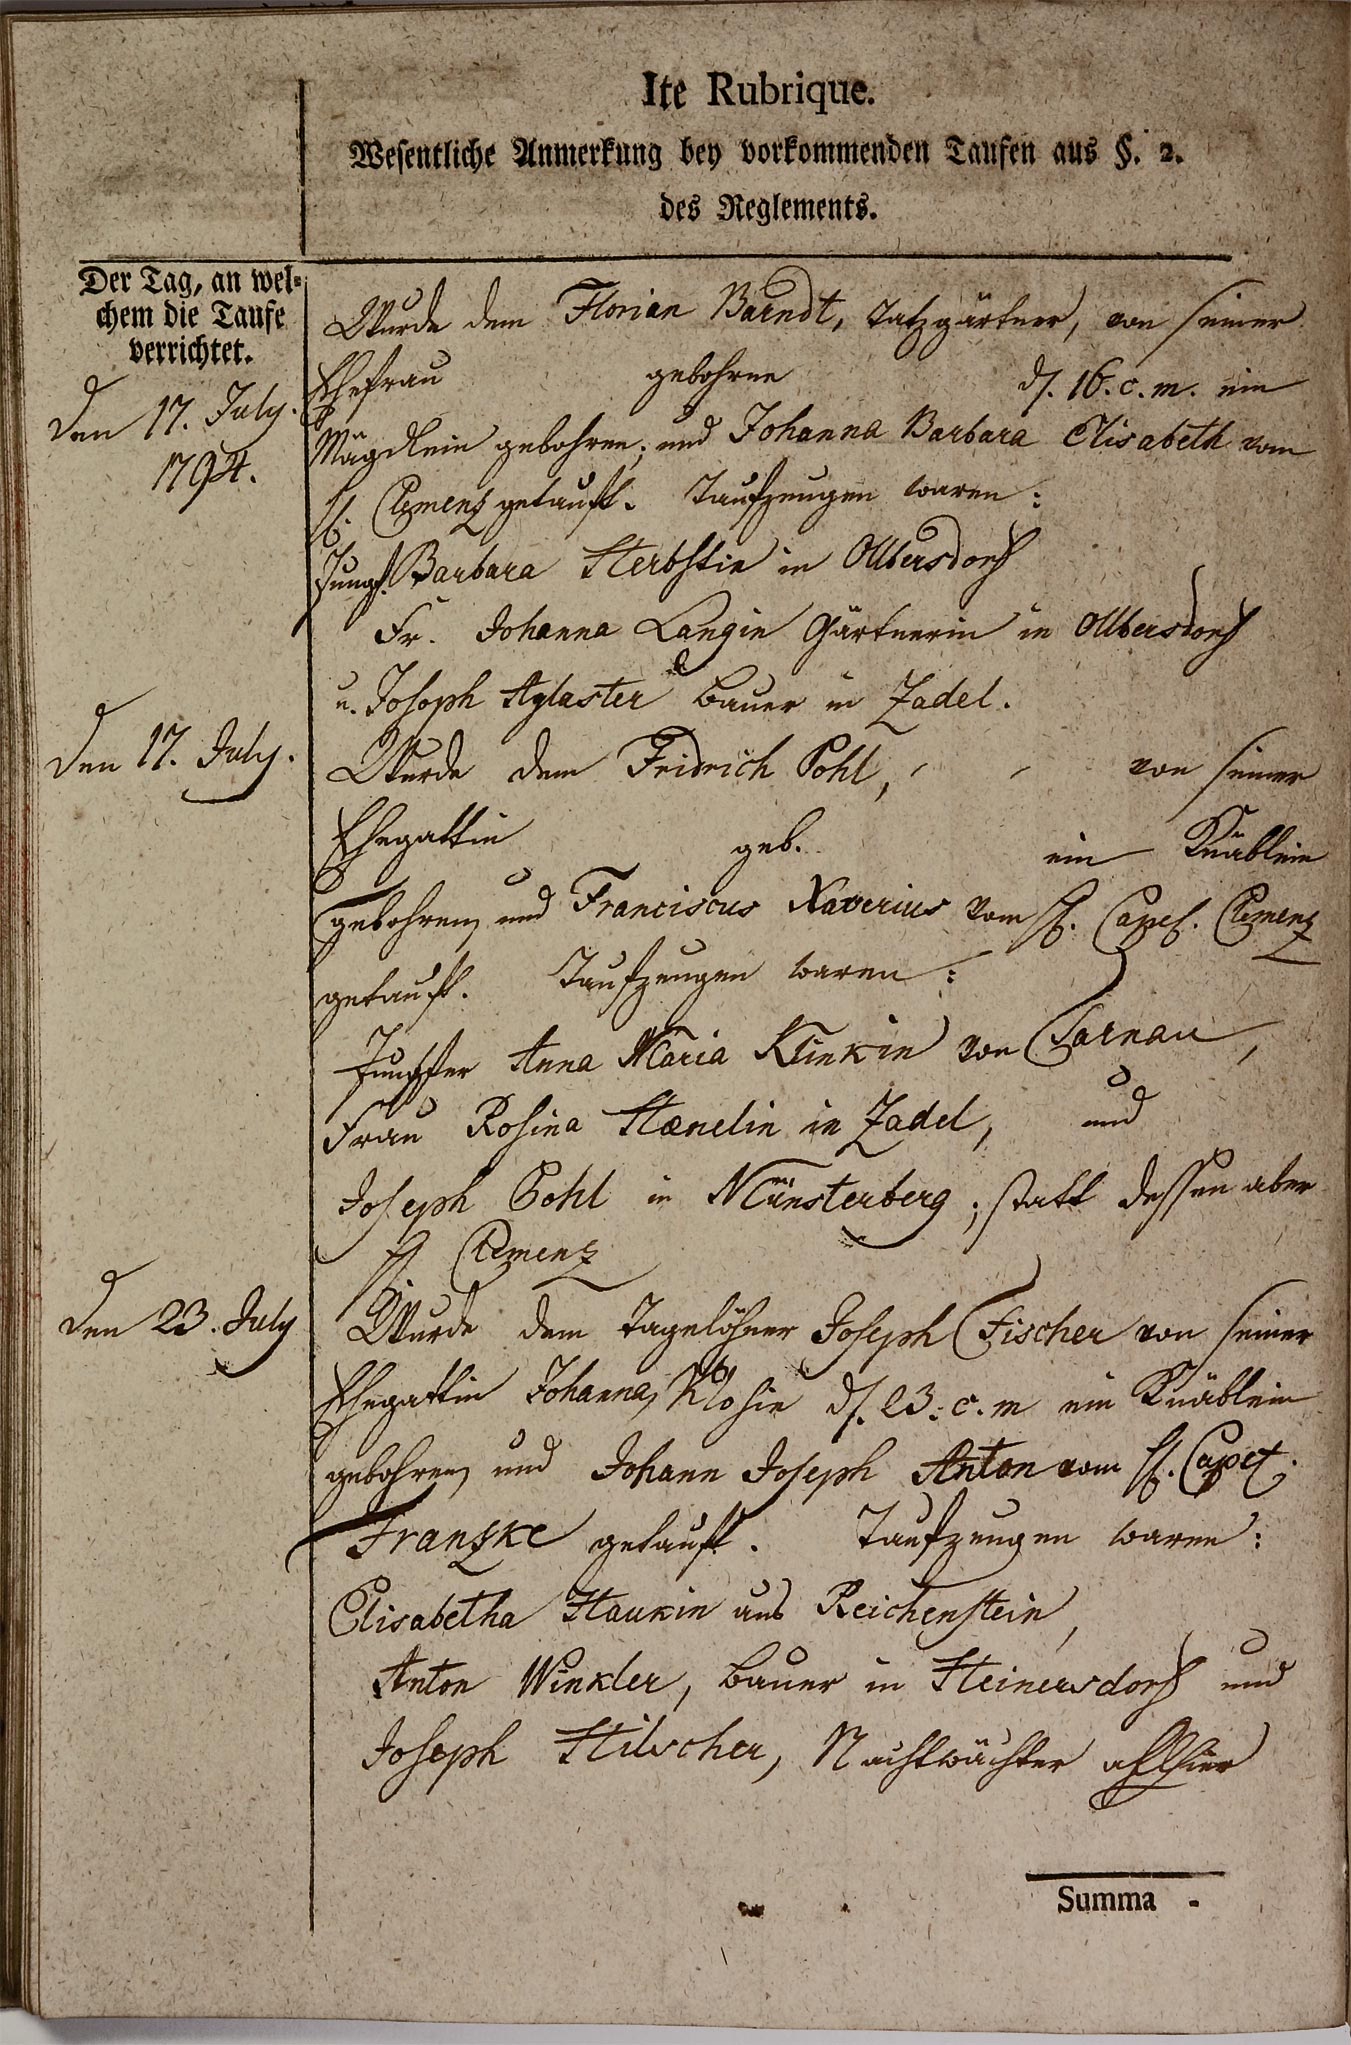 Ite Rubrique.
Wesentliche Anmerkung bey vorkommenden Taufen aus §. 2.
des Reglements.
Der Tag, an wel-
chem die Taufe
verrichtet.
Den 17. July.
1794.
Wurde dem Florian Barndt, Vatzgärtner, von seiner
Ehefrau gebohrne d. 16. c. m. ein
Mägdlein gebohren; und Johanna Barbara Elisabeth vom
H. Clemenz getauft. Taufzeugen waren:
Jungf. Barbara Herbstin in Olbersdorf
Fr. Johanna Langin Gärtnerin in Olbersdorf
u. Joseph Aglaster Bauer in Zadel.
Den 17. July.
Wurde dem Fridrich Pohl, von seiner
Ehegattin geb. ein Knäblein
gebohren, und Franciscus Xaverius vom H. Capel. Clemenz
getauft. Taufzeugen waren:
Junffer Anna Maria Klinkin von Tarnau,
Frau Rosina Hænelin in Zadel, und
Joseph Pohl in Münsterberg; statt dessen aber
H. Clemenz
Den 23. July
Wurde dem Tagelöhner Joseph Fischer von seiner
Ehegattin Johanna, Klosin d. 23. c. m ein Knäblein
gebohren, und Johann Joseph Anton vom H. Capel.
Franzke getauft. Taufzeugen waren:
Elisabetha Haukin aus Reichenstein,
Anton Winkler, Bauer in Heinersdorf und
Joseph Hilscher, Nachtwächter allhier
Summa -